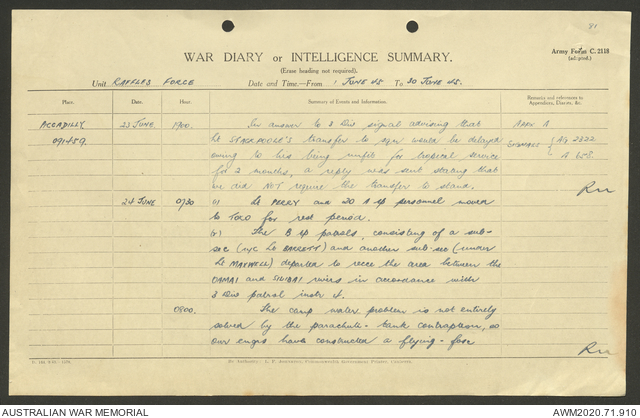 91
Army Form C. 2118
(adapted.)
WAR DIARY or INTELLIGENCE SUMMARY.
(Erase heading not required).
Unit RAFFLES FORCE Date and Time.—From 1 JUNE 45 To 30 JUNE 45.
Place. Date. Hour. Summary of Events and Information. Remarks and references to Appendices, Diaries, &c.
PICCADILLY 23 JUNE 1900. In answer to 3 Div signal advising that APPX A
091459. Lt STACKPOOLE's transfer to sqn would be delayed SIGNALS AQ 2822
owing to his being unfit for tropical service A 658.
for 2 months, a reply was sent stating that
we did NOT require the transfer to stand.
24 JUNE 0730 (1) Lt PERRY and 20 A tp personnel moved
to TOKO for rest period.
(2) The B tp patrols, consisting of a sub-
sec (u/c Lt BARRETT) and another sub-sec (under
Lt MAXWELL) departed to recce the area between the
OAMAI and SILIBAI rivers in accordance with
3 Div patrol instr
0800. The camp water problem is not entirely
solved by the parachute-tank contraption, so
our engrs have constructed a flying-fox
By Authority: L. F. Johnston, Commonwealth Government Printer, Canberra.
AUSTRALIAN WAR MEMORIAL
AWM2020.71.910